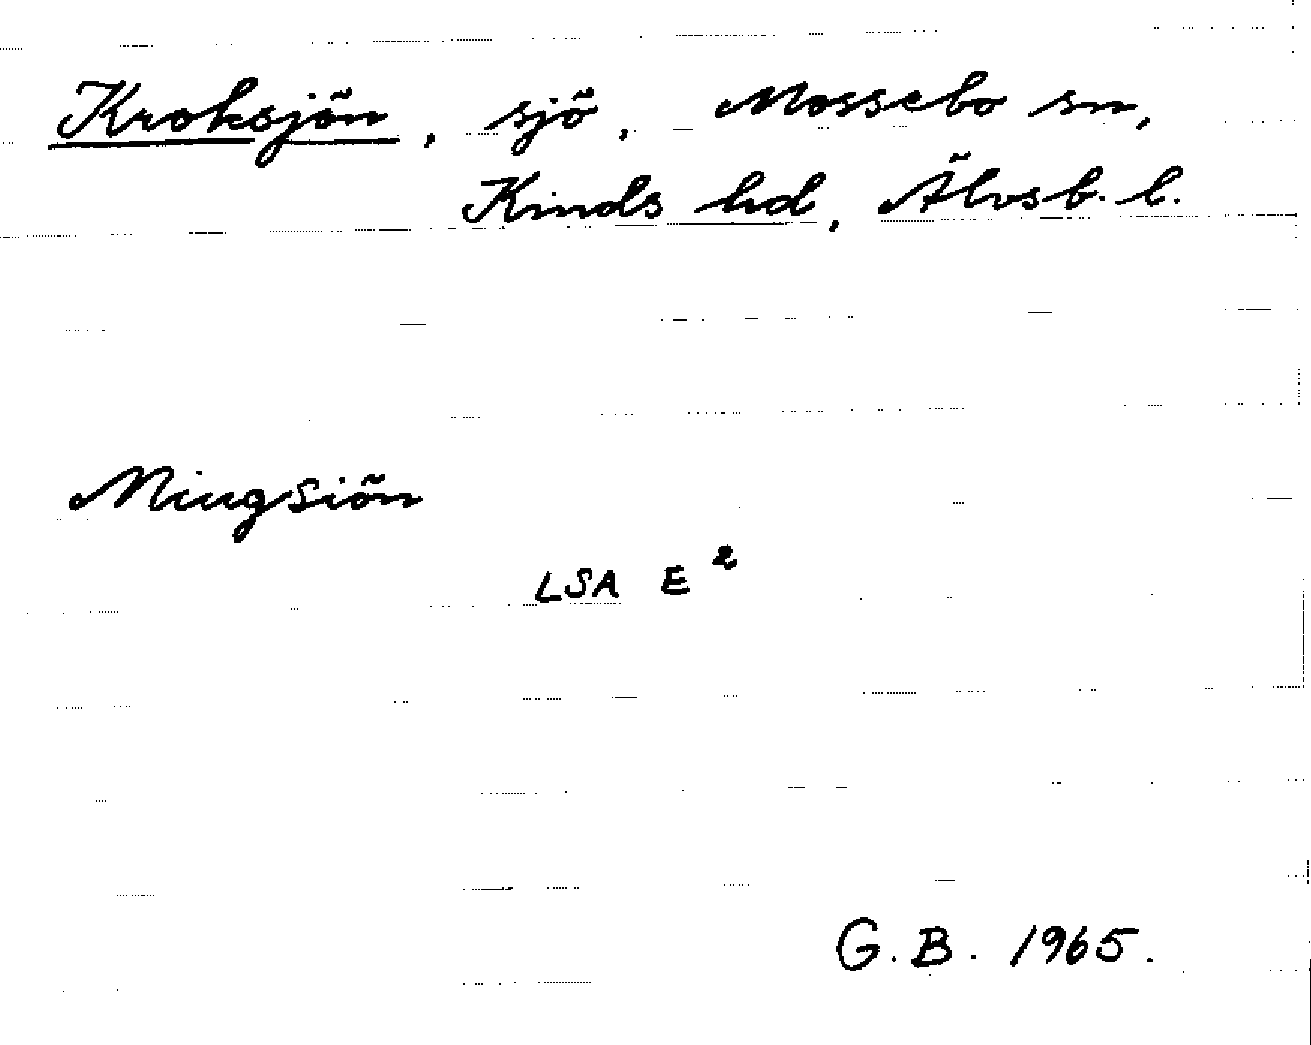 Kroksjön, sjö, Mossebo sn,
Kinds hd, Älvsb. l.
Miugsiön
LSA E²
G. B. 1965.